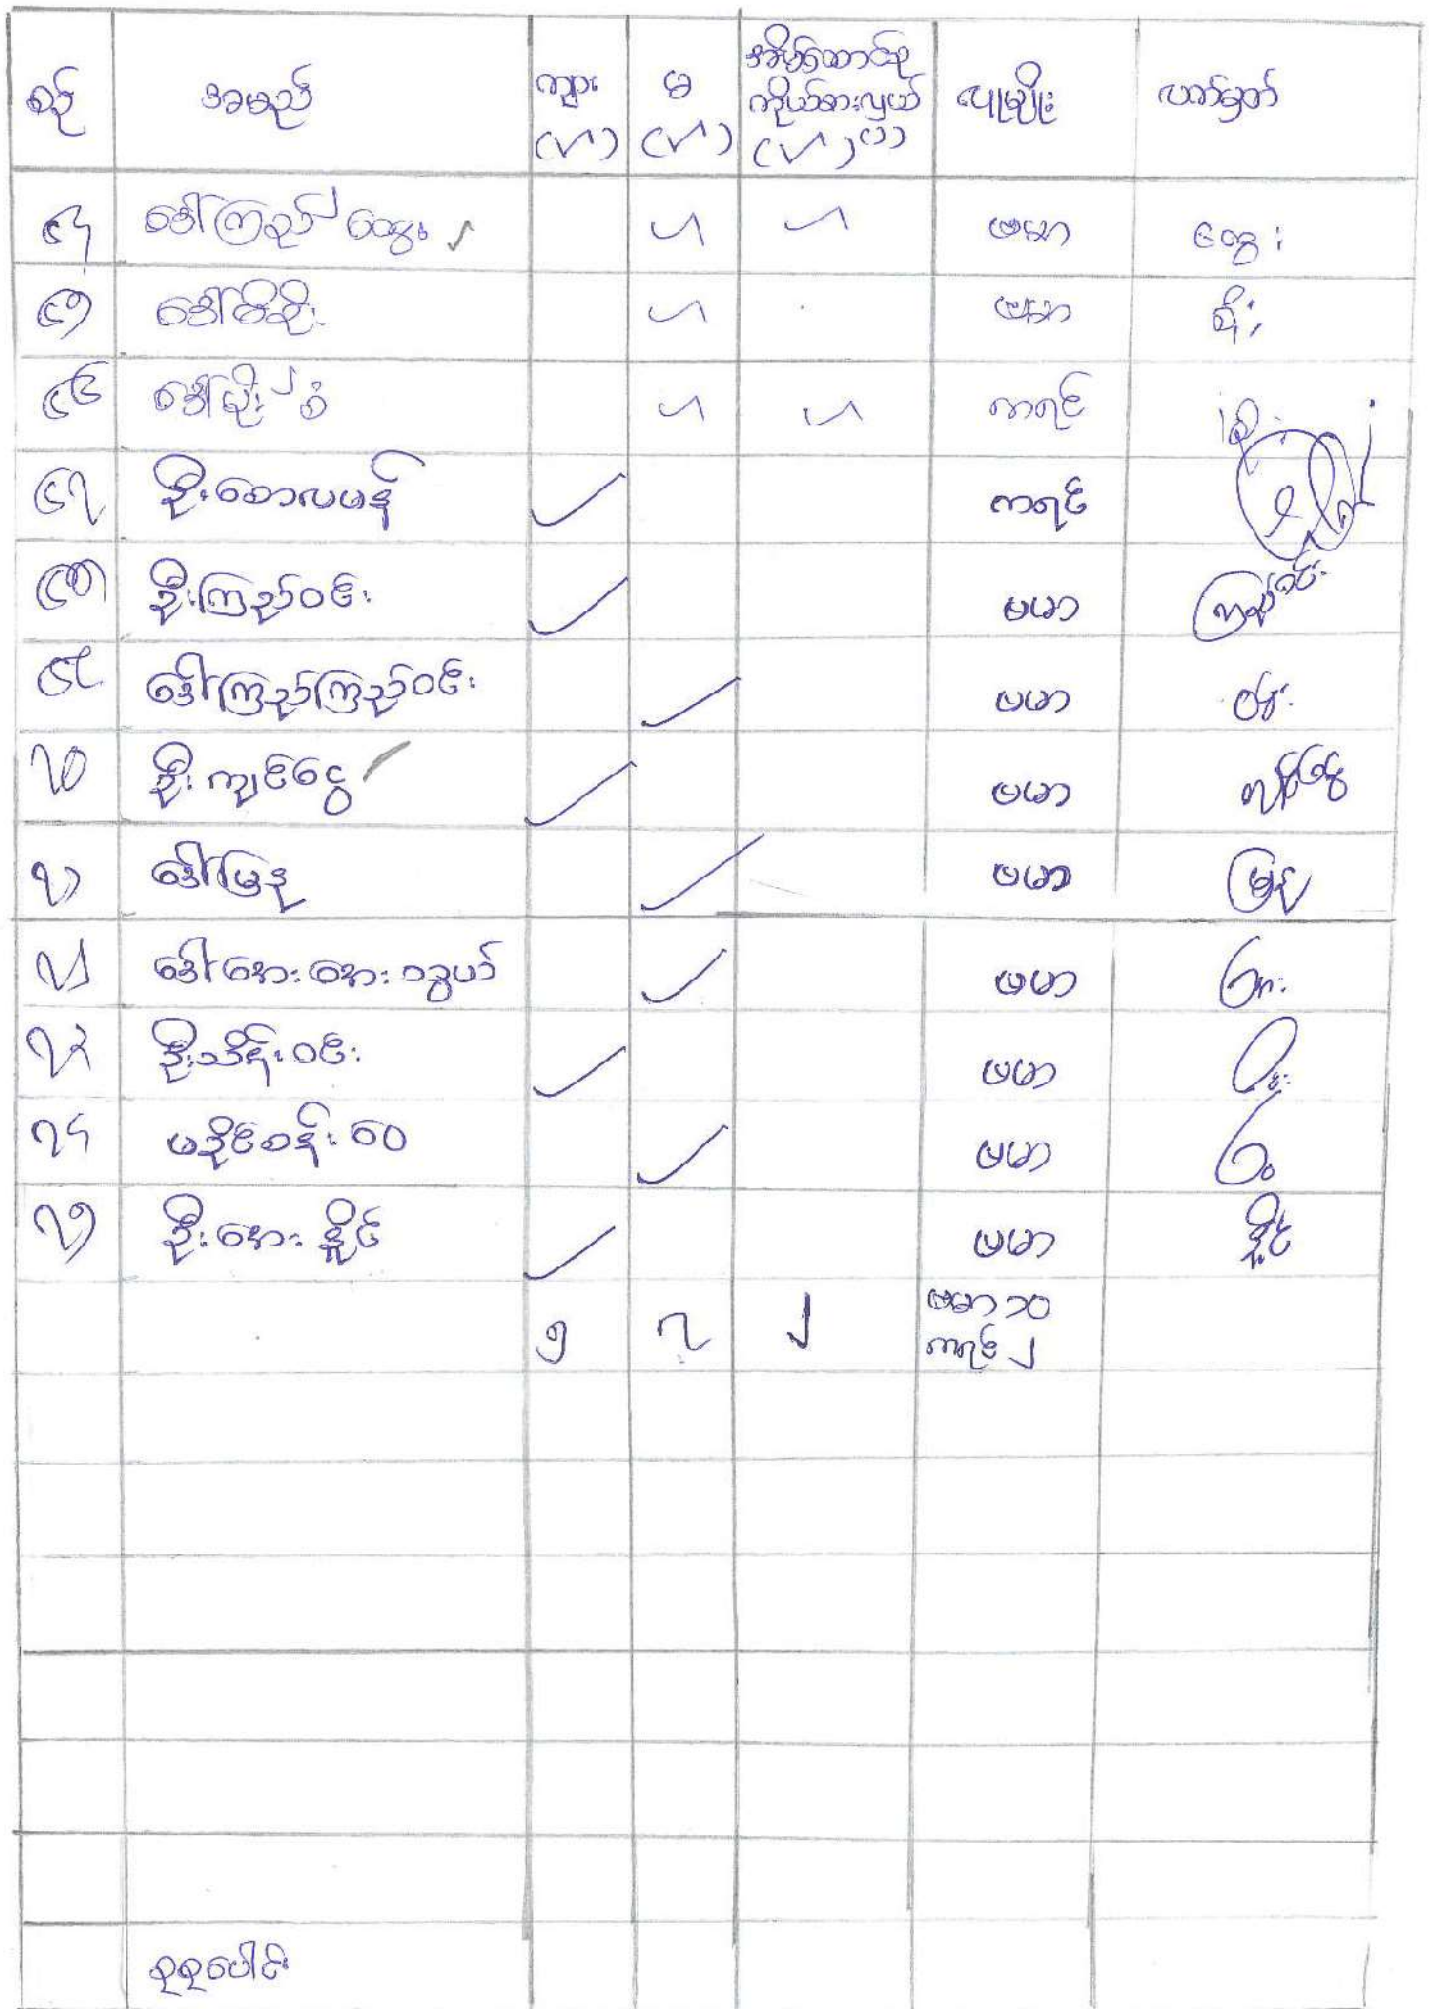 စဉ် အမည် ကျား (✓) မ (✓) အိမ်ထောင်စု ကိုယ်စားလှယ် (✓) (၁) လူမျိုး လက်မှတ်
၆၄ ဒေါ်ကြည်ထွေး ✓ ✓ ✓ ဗမာ ထွေး
၆၅ ဒေါ်စိုး ✓ ဗမာ စိုး
၆၆ ✓ ✓ ကရင်
၆၇ ဦးစောလမန် ✓ ကရင်
၆၈ ဦးကြည်ဝင်း ✓ ဗမာ ကြည်ဝင်း
၆၉ ဒေါ်ကြည်ကြည်ဝင်း ✓ ဗမာ ဝင်း
၇၀ ဦးကျင်ငွေ ✓ ဗမာ ကျင်ငွေ
၇၁ ဒေါ်မြနု ✓ ဗမာ မြနု
၇၂ ဒေါ်အေးအေးသွယ် ✓ ဗမာ အေး
၇၃ ဦးသိန်းဝင်း ✓ ဗမာ
၇၄ မခိုင်ဇန်းဝေ ✓ ဗမာ
၇၅ ဦးအေးနှိုင် ✓ ဗမာ နှိုင်
၅ ၇ ၂ ဗမာ ၁၀
ကရင် ၂
စုစုပေါင်း